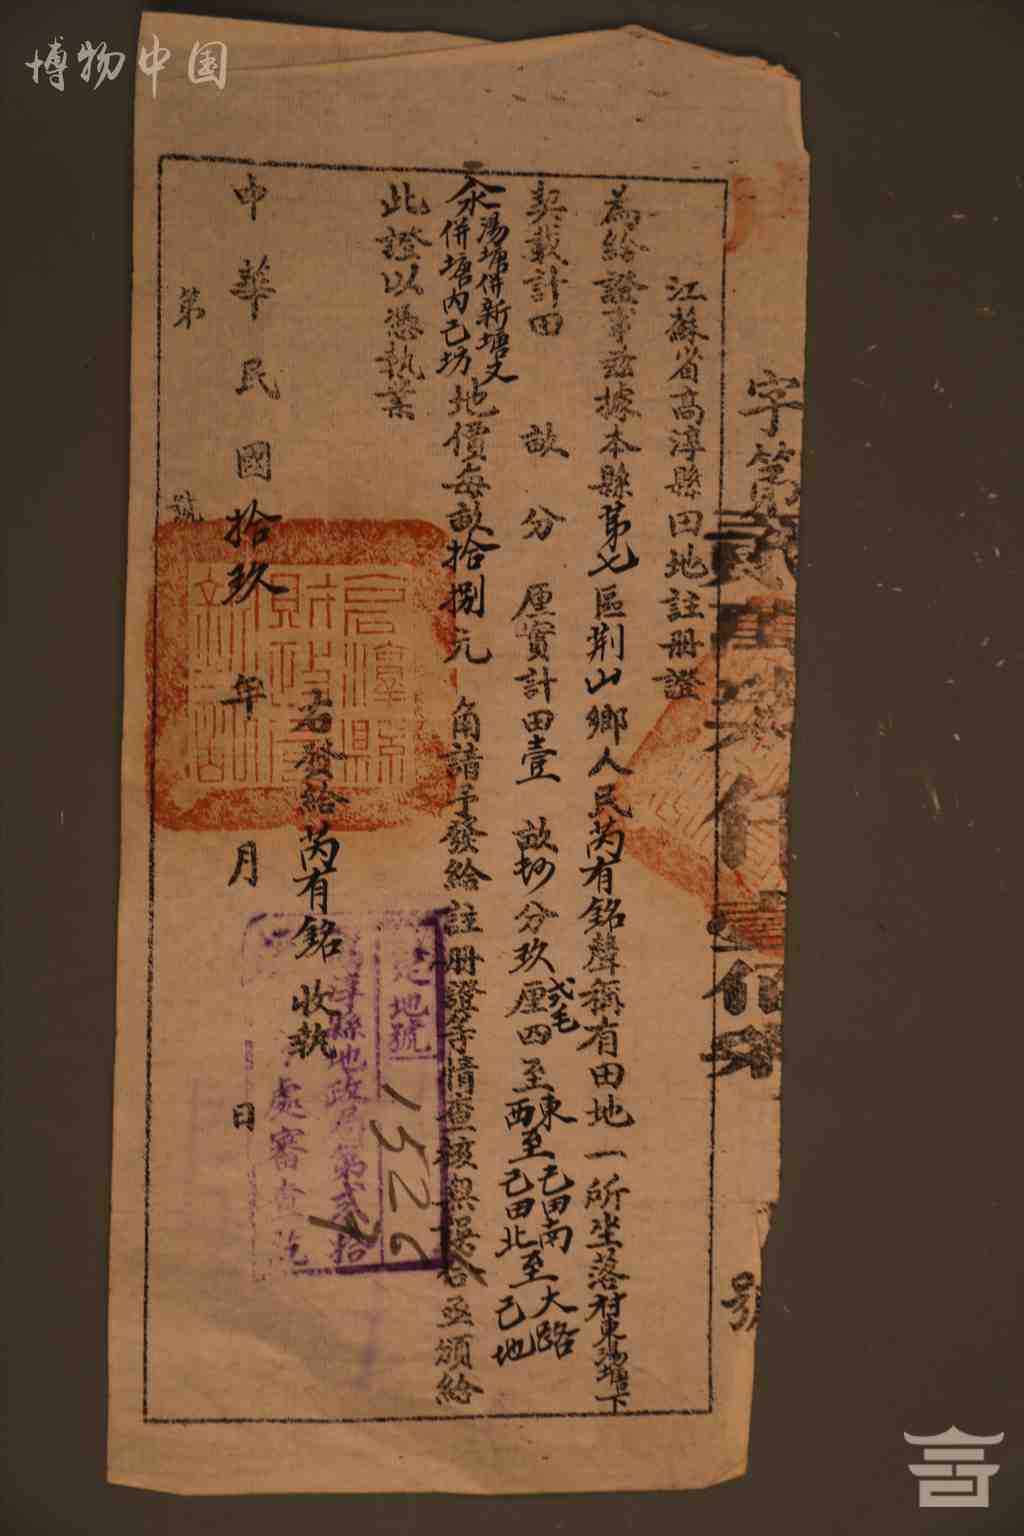 博物中国
字第
號
江蘇省高淳縣田地註冊證
為給證事茲據本縣第七區荆山鄉人民芮有銘聲稱有田地一所坐落村東湯塘下
契載計田 畝 分 厘實計田壹 畝 分玖厘弍毛四至東至己田南至大路西至己田北至己地
湯塘併新塘
併塘內己坊
地價每畝拾捌元 角請予發給註冊證等情查核無误合亟頒給
此證以憑執業
右發給芮有銘收執
中華民國拾玖年 月 日
第 號
高淳縣財政局
地號
1526
淳縣地政局第弍拾
處審查訖